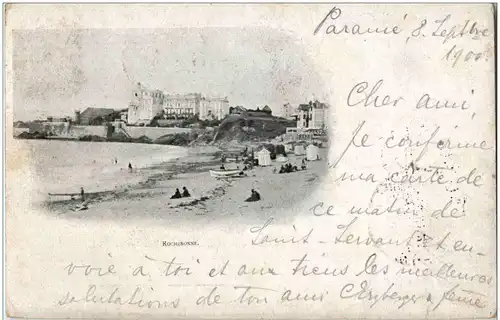 Paramé, 8 Septbre
1900.
Cher ami
Je confirme
ma carte de
ce matin de
Saint-Servant et en-
voie à toi et aux tiens les meilleures
salutations de ton ami & feme
ROCHEBONNE.